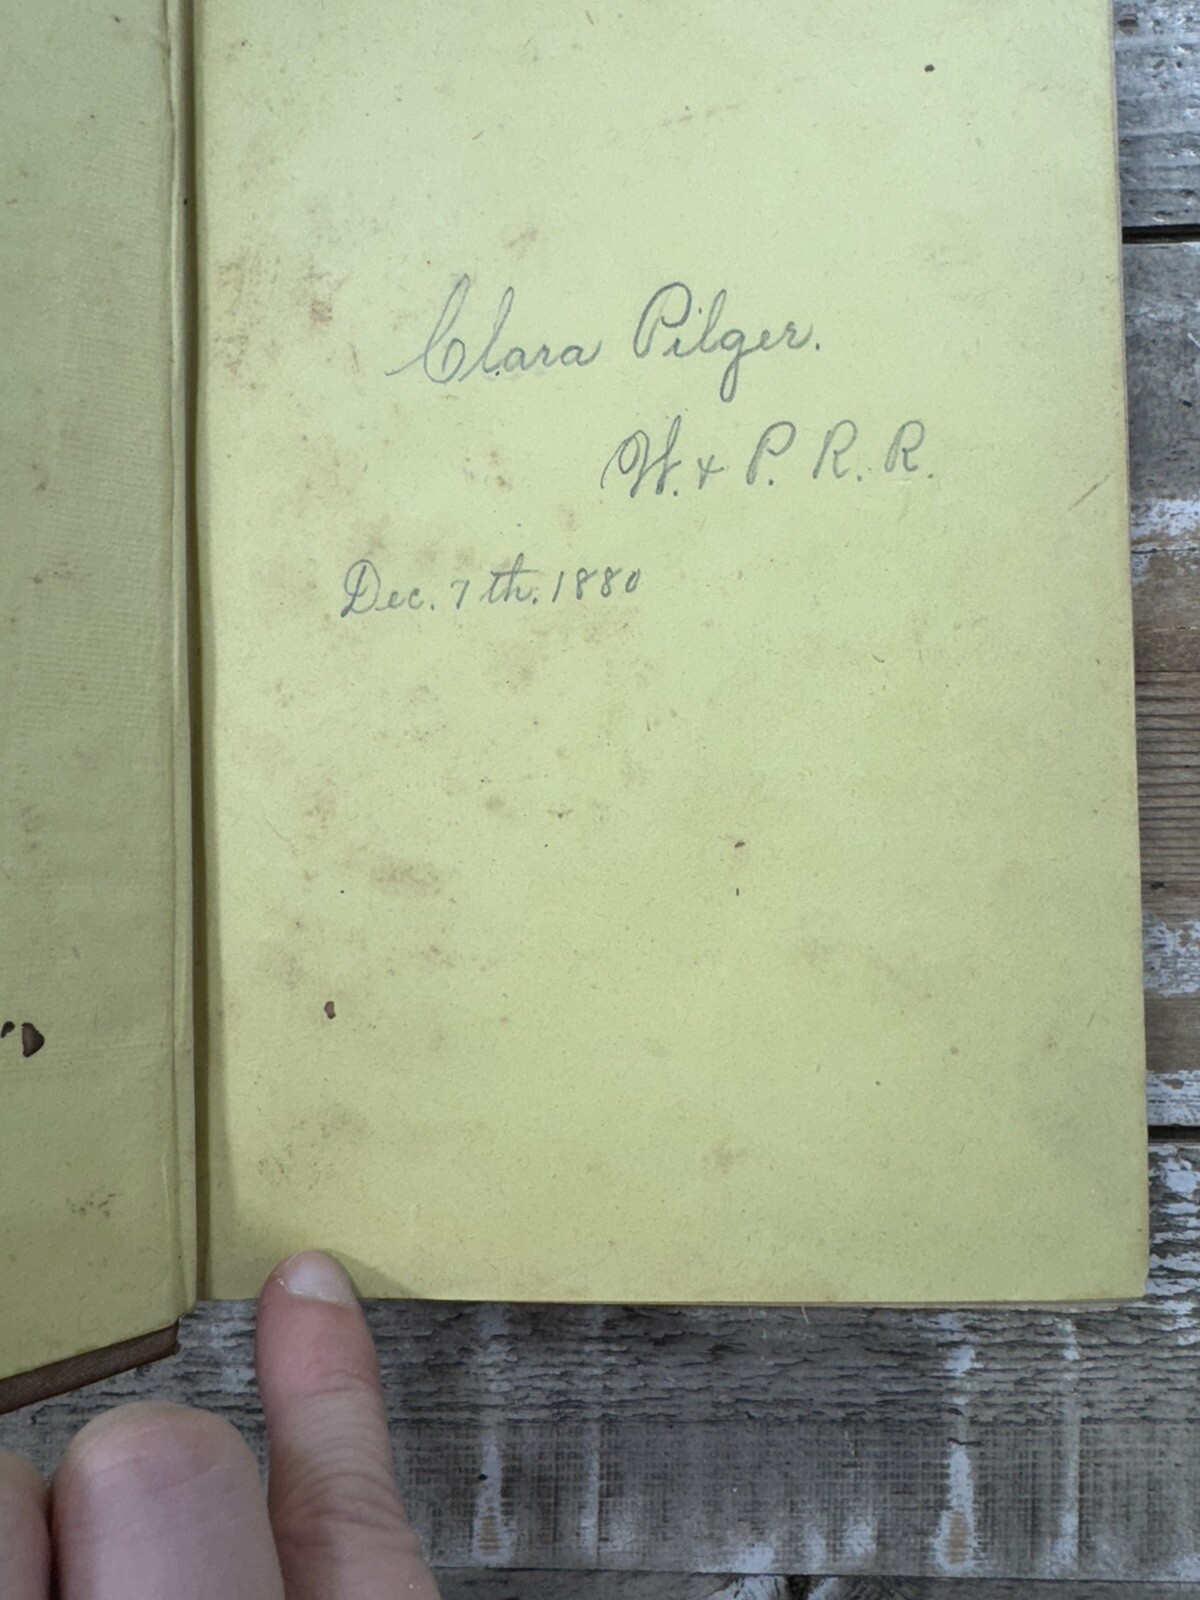 Clara Pilger.
W. & P. R. R.
Dec. 7th. 1880